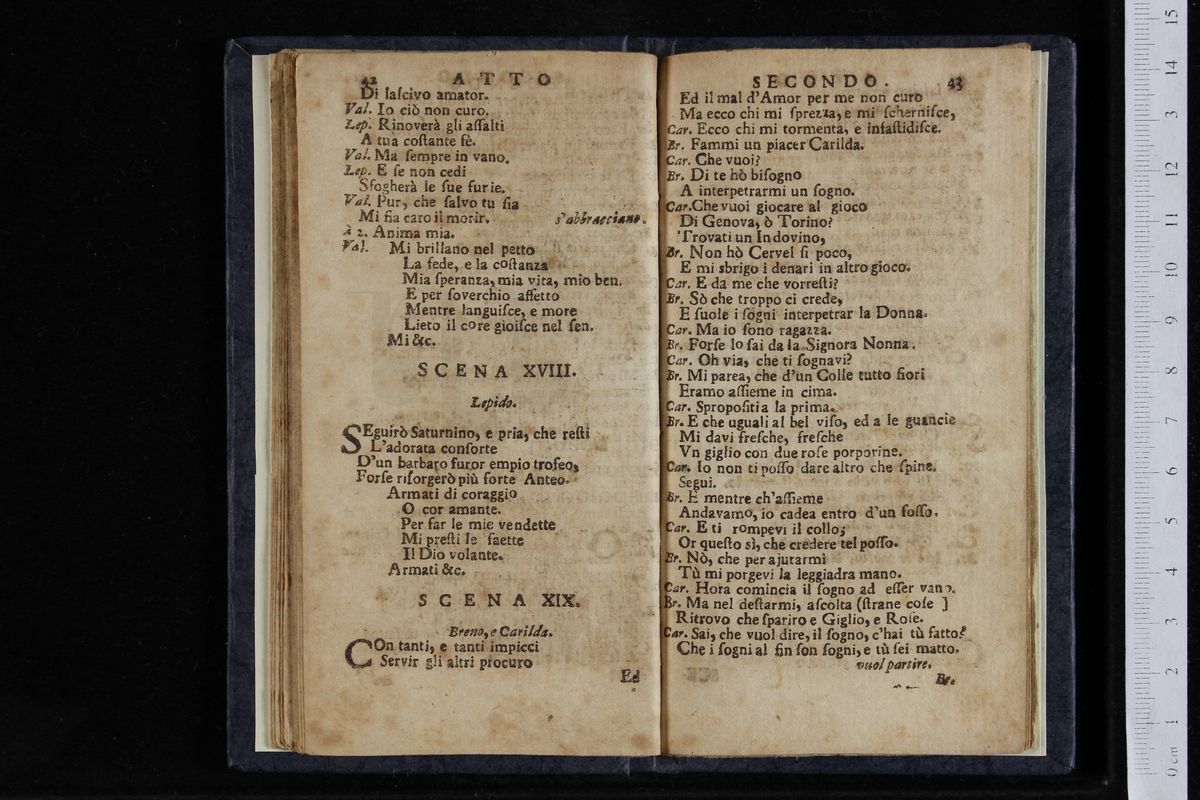 42 ATTO
Di laſcivo amator.
Val. Io ciò non curo.
Lep. Rinoverà gli aſſalti
A tua coſtante fè.
Val. Ma ſempre in vano.
Lep. E ſe non cedi
Sfogherà le ſue furie.
Val. Pur, che ſalvo tu ſia
Mi fia caro il morir. s'abbracciano.
à 2. Anima mia.
Val. Mi brillano nel petto
La fede, e la coſtanza
Mia ſperanza, mia vita, mio ben.
E per ſoverchio affetto
Mentre languiſce, e more
Lieto il core gioiſce nel ſen.
Mi &c.
SCENA XVIII.
Lepido.
SEguirò Saturnino, e pria, che reſti
L'adorata conſorte
D'un barbaro furor empio trofeo,
Forſe riſorgerò più forte Anteo.
Armati di coraggio
O cor amante.
Per far le mie vendette
Mi preſti le ſaette
Il Dio volante.
Armati &c.
SCENA XIX.
Breno, e Carilda.
COn tanti, e tanti impicci
Servir gli altri procuro
Ed
SECONDO. 43
Ed il mal d'Amor per me non curo
Ma ecco chi mi ſprezza, e mi ſcherniſce,
Car. Ecco chi mi tormenta, e infaſtidiſce.
Br. Fammi un piacer Carilda.
Car. Che vuoi?
Br. Di te hò biſogno
A interpetrarmi un ſogno.
Car. Che vuoi giocare al gioco
Di Genova, ò Torino?
Trovati un Indovino,
Br. Non hò Cervel ſi poco,
E mi sbrigo i denari in altro gioco.
Car. E da me che vorreſti?
Br. Sò che troppo ci crede,
E ſuole i ſogni interpetrar la Donna.
Car. Ma io ſono ragazza.
Br. Forſe lo ſai da la Signora Nonna.
Car. Oh via, che ti ſognavi?
Br. Mi parea, che d'un Colle tutto fiori
Eramo aſſieme in cima.
Car. Spropoſiti a la prima.
Br. E che uguali al bel viſo, ed a le guancie
Mi davi freſche, freſche
Vn giglio con due roſe porporine.
Car. Io non ti poſſo dare altro che ſpine.
Segui.
Br. E mentre ch'aſſieme
Andavamo, io cadea entro d'un foſſo.
Car. E ti rompevi il collo;
Or queſto sì, che credere tel poſſo.
Br. Nò, che per ajutarmi
Tù mi porgevi la leggiadra mano.
Car. Hora comincia il ſogno ad eſſer vano.
Br. Ma nel deſtarmi, aſcolta (ſtrane coſe ]
Ritrovo che ſpariro e Giglio, e Roſe.
Car. Sai, che vuol dire, il ſogno, c'hai tù fatto?
Che i ſogni al fin ſon ſogni, e tù ſei matto.
vuol partire.
Br.